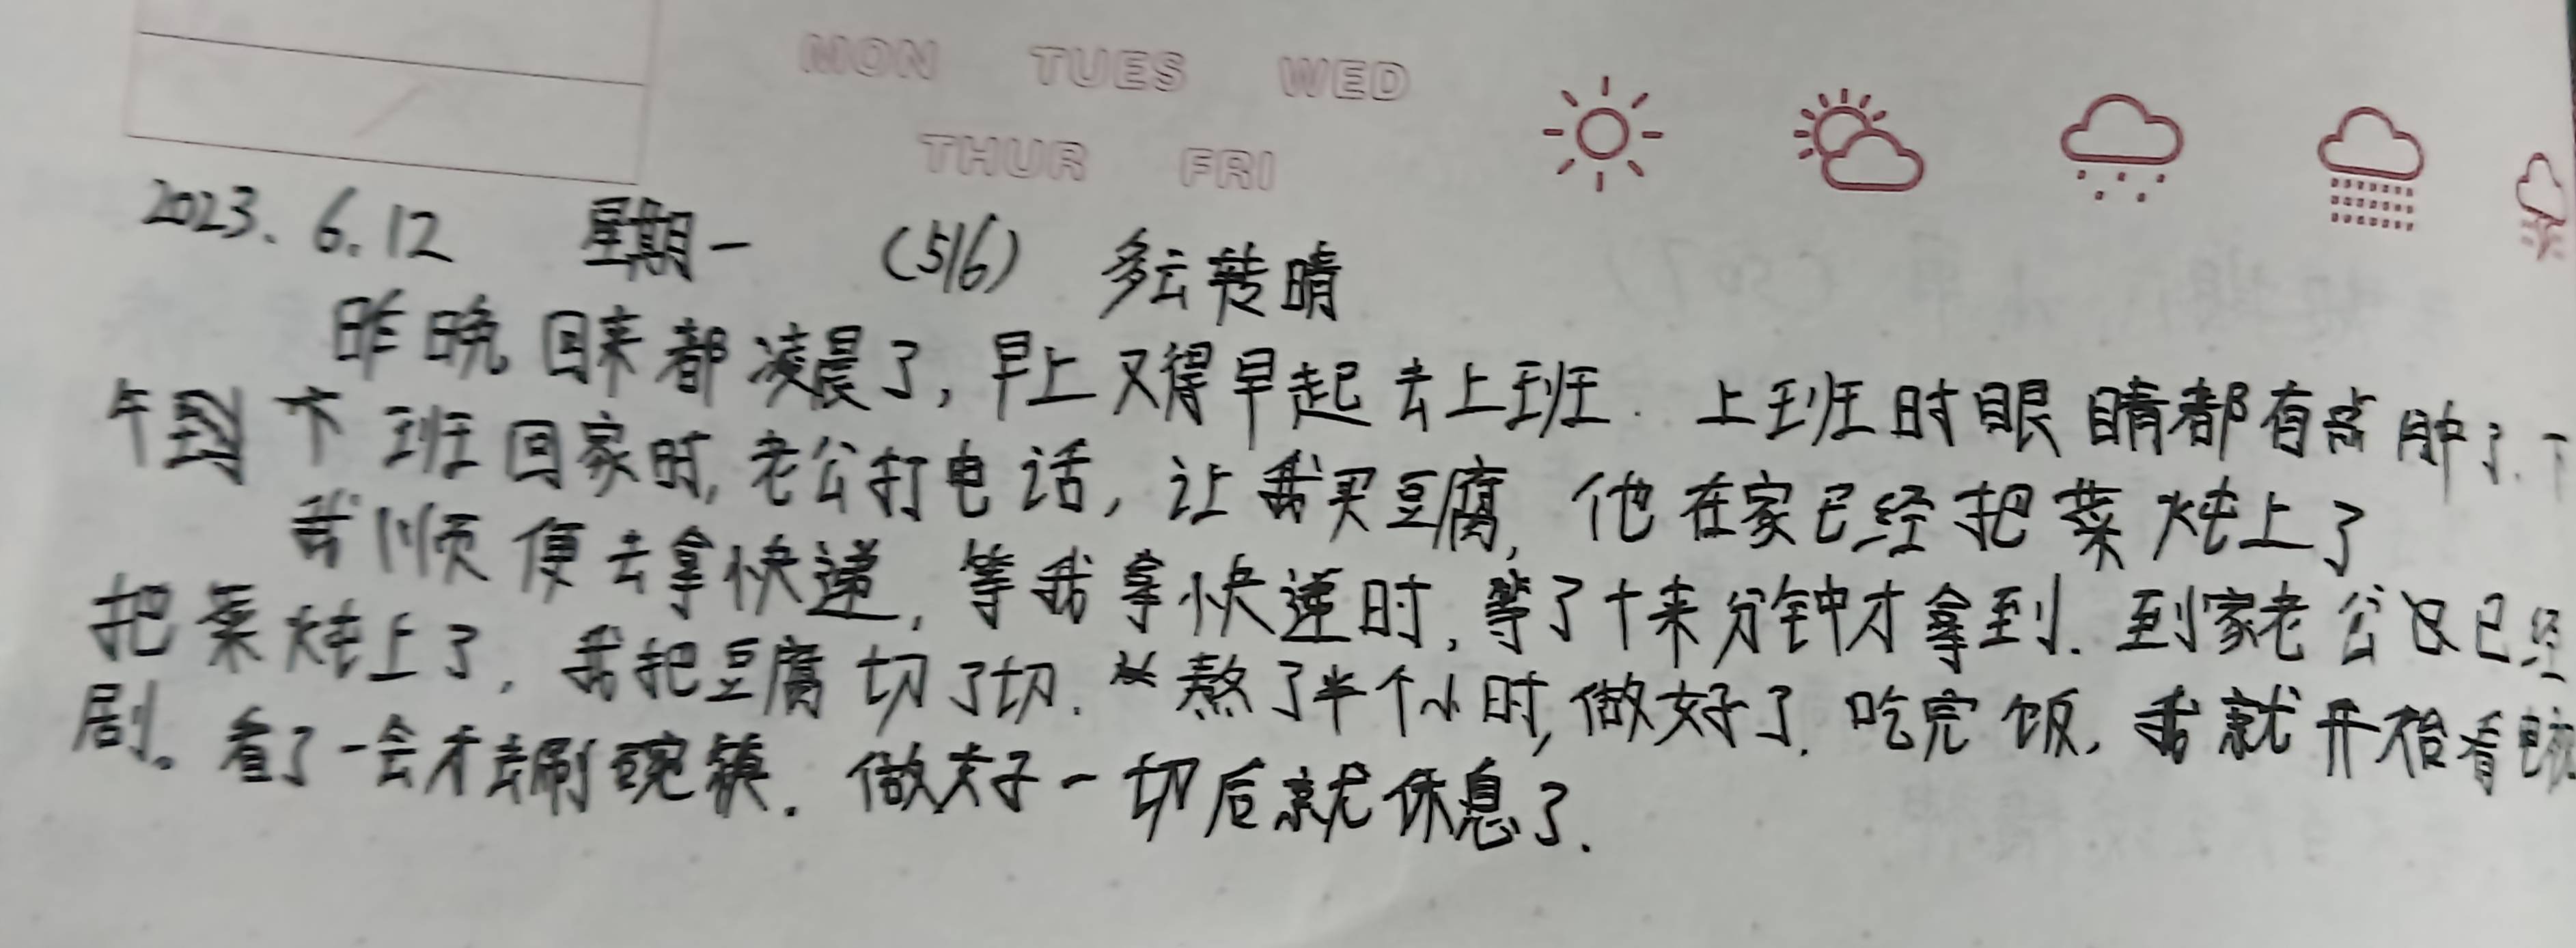 MON TUES WED
THUR FRI
2023. 6.12 星期一 (516) 多云转晴
昨晚回来都凌晨了,早上又得早起去上班. 上班时眼睛都有点肿了.下
午到下班回家时,老公打电话,让我买豆腐,他在家已经把菜炖上了
我顺便去拿快递,等我拿快递时,等了十来分钟才拿到.到家老公已经
把菜炖上了,我把豆腐切了切.熬了半个小时,做好了.吃完饭,我就开始看电视
剧。看了一会才去刷碗筷.做好一切后就休息了.